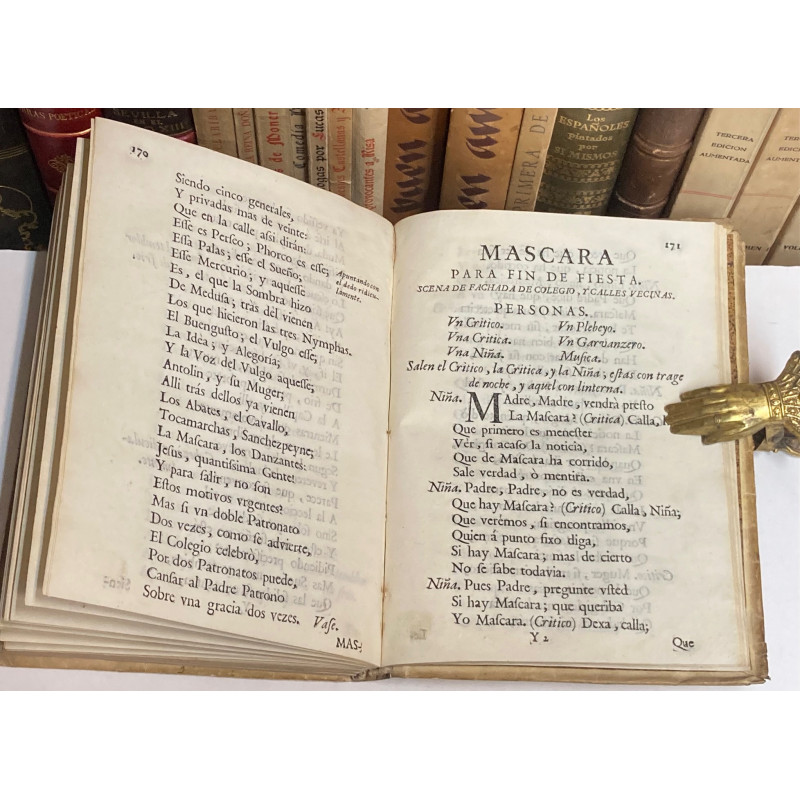 RAN POETICA
SEVILLA
EN EL
XIII
de Moner
Comedia
ogas por Lucas
Castellanos y
rovocantes a Risa
buen am
buen am
PRIMERA DE
Los
ESPAÑOLES
pintados
por
SI MISMOS
TERCERA
EDICION
AUMENTADA
TERCERA
EDICION
AUMENTADA
170
Siendo cinco generales,
Y privadas mas de veinte:
Que en la calle assi diràn:
Esse es Perseo; Phorco es esse;
Essa Palas; esse el Sueño;
Esse Mercurio; y aquesse
Es, el que la Sombra hizo
De Medusa; tràs dèl vienen
Los que hicieron las tres Nymphas.
El Buengusto; el Vulgo esse;
La Idèa; y Alegorìa;
Y la Voz del Vulgo aquesse;
Antolin, y su Muger;
Alli tràs dellos yà vienen
Los Abates, el Cavallo,
Tocamarchas, Sanchezpeyne;
La Mascara, los Danzantes:
Jesus, quantissima Gente!
Y para salir, no son
Estos motivos vrgentes?
Mas si vn doble Patronato
Dos vezes, como se advierte,
El Colegio celebrò,
Por dos Patronatos puede,
Cansar al Padre Patrono
Sobre vna gracia dos vezes. Vase.
Apuntando con
el dedo ridicu-
lamente.
MAS-
171
MASCARA
PARA FIN DE FIESTA.
SCENA DE FACHADA DE COLEGIO, Y CALLES VECINAS.
PERSONAS.
Vn Critico. Vn Plebeyo.
Vna Critica. Vn Garvanzero.
Vna Niña. Musica.
Salen el Critico, la Critica, y la Niña; estas con trage
de noche, y aquel con linterna.
Niña. MAdre, Madre, vendrà presto
La Mascara? (Critica) Calla,
Que primero es menester
Vèr, si acaso la noticia,
Que de Mascara ha corrido,
Sale verdad, ò mentira.
Niña. Padre, Padre, no es verdad,
Que hay Mascara? (Critico) Calla, Niña;
Que verèmos, si encontramos,
Quien à punto fixo diga,
Si hay Mascara; mas de cierto
No se sabe todavia.
Niña. Pues Padre, pregunte vsted
Si hay Mascara; que queriba
Yo Mascara. (Critico) Dexa, calla;
Y 2
Que